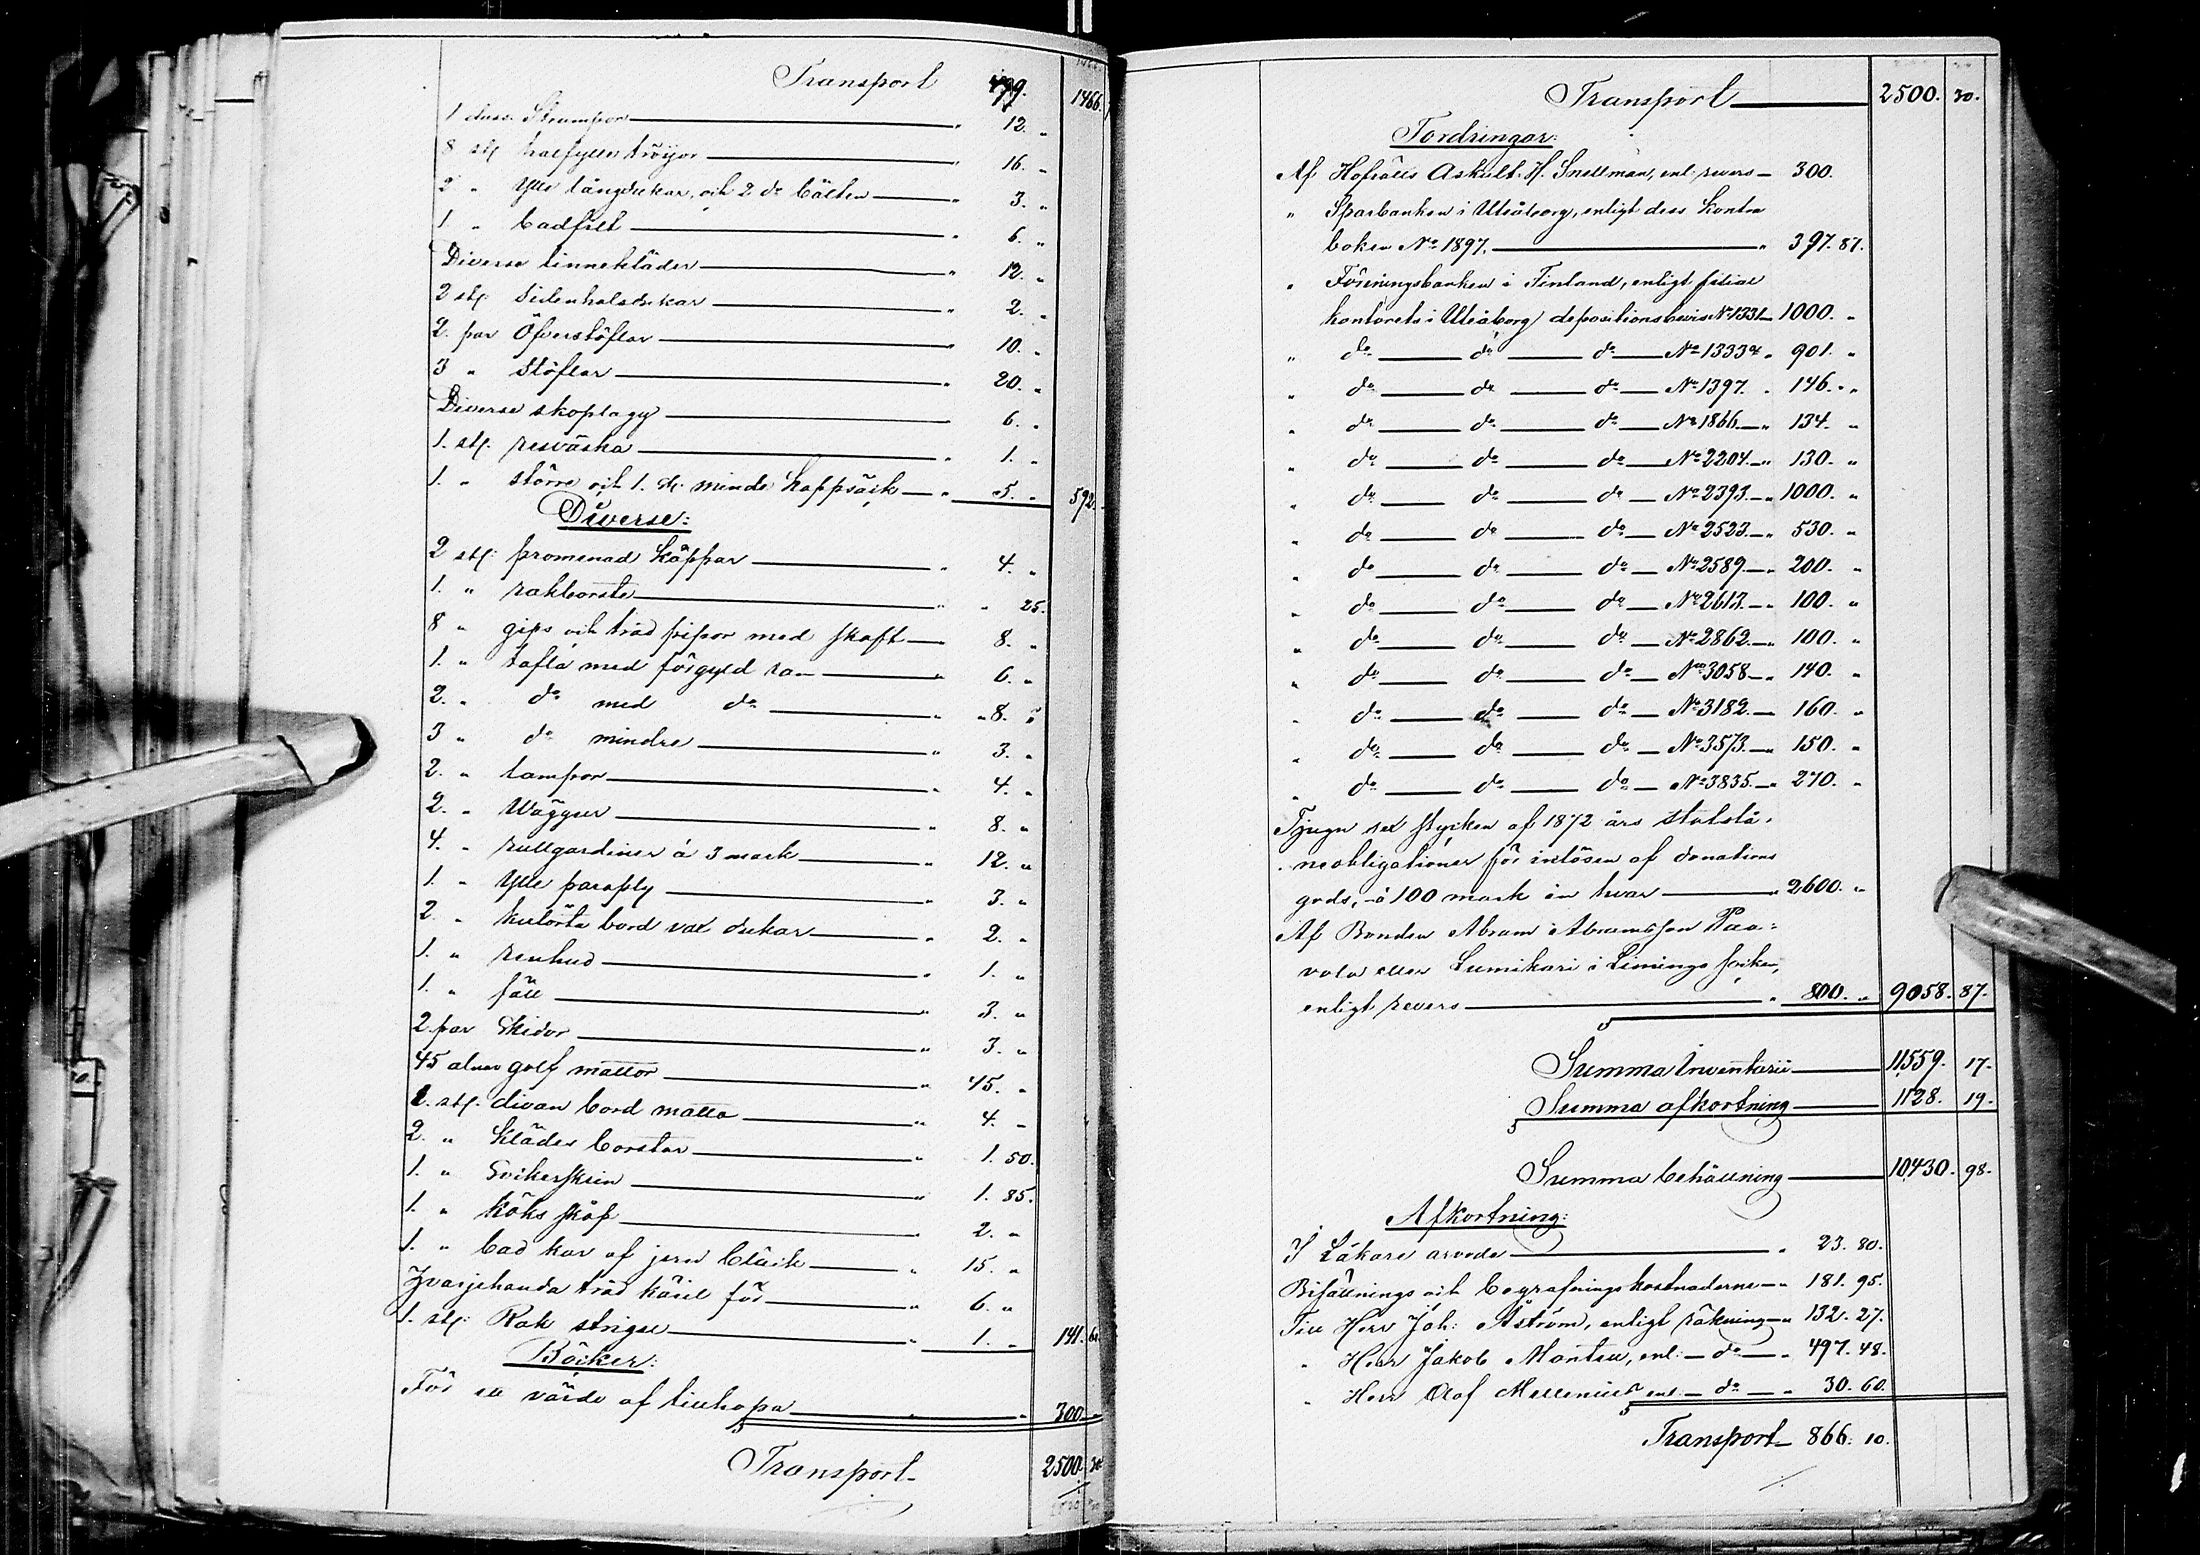 Transport 499. 1466.
1 duss. Strumpor " 12. "
8 st. halfylle tröijor " 16. "
2 " Ylle långdukar, och 2 do bälten " 3. "
1. " badfilt " 6. "
Diverse linnekläder " 12. "
2 st. sidenhalsdukar " 2. "
2. par Öfverstöflar " 10. "
3 " Stöflar " 20. "
Diverse skoplagg " 6. "
1. st. resväska " 1. "
1. " större och 1. st. mindre kappsäck " 5. " 592.
Diverse:
2 st. promenad käppar " 4. "
1. " rakborste " " 25.
8 " gips och träd pipor med skaft 8. "
1. " tafla med förgyld ram " 6. "
2. " do med do " 8. "
3 " do mindre " 3. "
2. " lampor " 4. "
2. " Wäggur " 8. "
4. " rullgardiner á 3 mark " 12. "
1. " Ylle paraply " 3. "
2. " kulörta bord vax dukar " 2. "
1. " renhud " 1. "
1. " fäll " 3. "
2. par Skidor " 3. "
45 alnar golf mattor " 45. "
1. st. divan bord matta " 4. "
2. " Kläder borstar " 1. 50.
1. " " 1. 85.
1. " Köks skåp " 2. "
1. " bad kar af jern bläck " 15. "
Hvarjehanda träd käril för " 6. "
1. st. Rak strigel " 1. " 141. 60
Böcker:
För ett värde af tillhopa " 300. "
Transport 2500. 30
Transport 2500. 30.
Fordringar:
Af Hofrätts Askult. H. Snellman, enl. revers 300.
" Sparbanken i Uleåborg, enligt dess kontra
boken No 1897. " 397. 87.
" Föreningsbanken i Finland, enligt filial
kontorets i Uleåborg depositionsbevis No 1331 1000. "
" do do do No 1333 " 901. "
" do do do No 1397. " 146. "
" do do do No 1866. " 134. "
" do do do No 2204. " 130. "
" do do do No 2393. " 1000. "
" do do do No 2523. " 530. "
" do do do No 2589. " 200. "
" do do do No 2613. " 100. "
" do do do No 2862. " 100. "
" do do do No 3058 " 140. "
" do do do No 3182. 160. "
" do do do No 3573. " 150. "
" do do do No 3835. " 270. "
Tjugu sex stycken af 1872 års statslå-
neobligationer för inlösen af donations
gods, á 100 mark en hvar " 2600. "
Af Bonden Abram Abramsson Paa-
vola eller Lumikari i Limingo socken,
enligt revers " 800. " 9058. 87.
Summa Inventarii 11559. 17.
Summa afkortning 1128. 19.
Summa behållning 10430. 98.
Afkortning:
I Läkare arvode " 23. 80.
Bisättnings och begrafnings kostnaderne " 181. 95.
Till Herr Joh: Åström, enligt räkning " 132. 27.
" Herr Jakob Montell, enl: do " 497. 48.
" Herr Olof Mellenius enl: do " 30. 60.
Transport 866. 10.